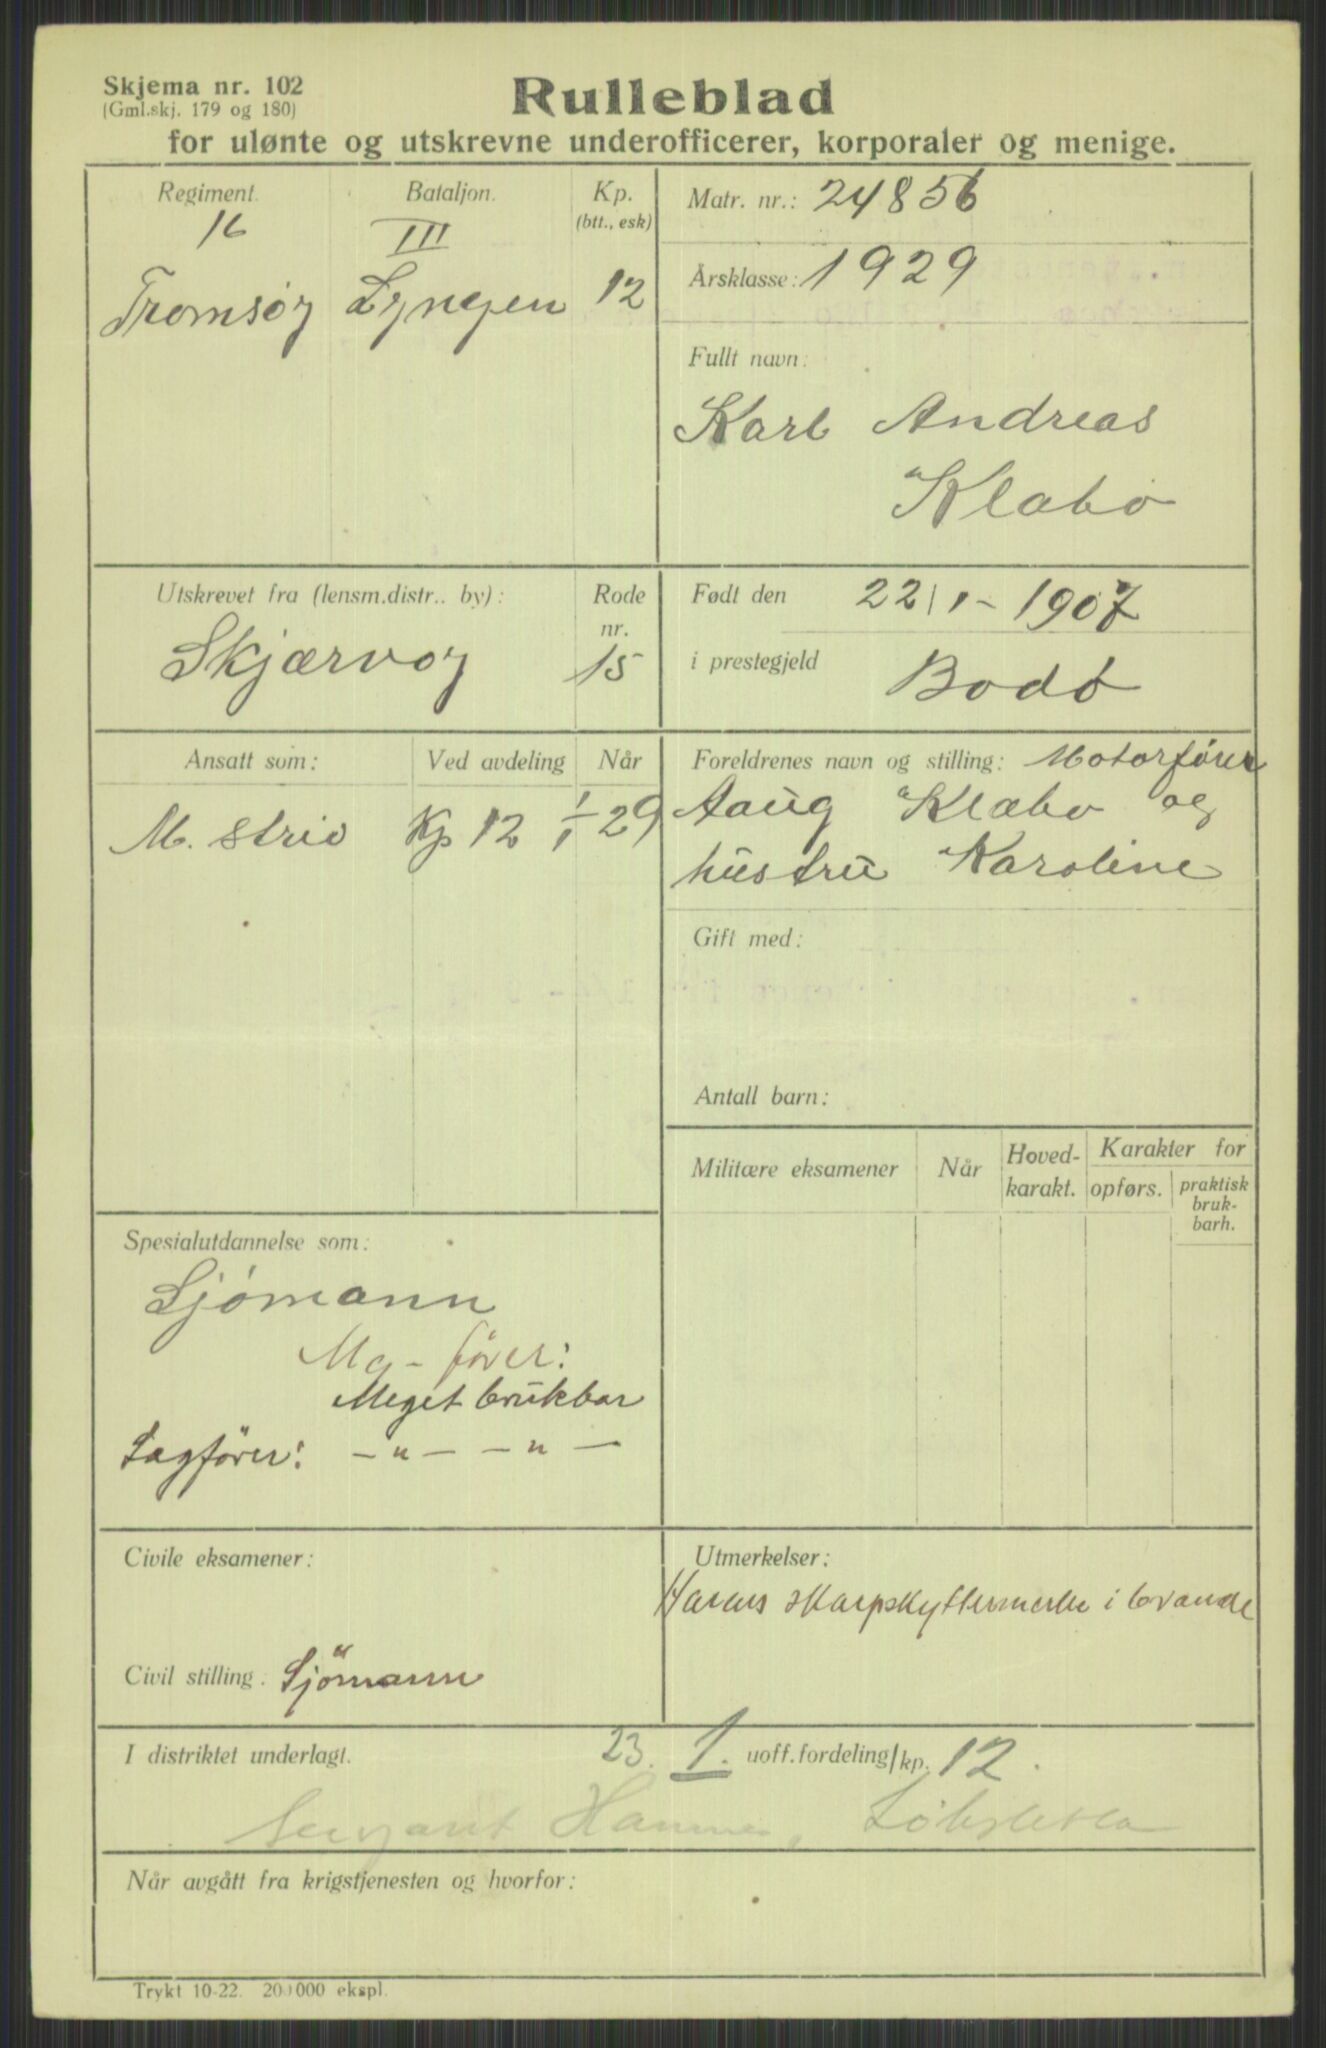 Skjema nr. 102
(Gml.skj. 179 og 180)
Rulleblad
for ulønte og utskrevne underofficerer, korporaler og menige.
Regiment. Bataljon. Kp.
(btt., esk)
16 III
Tromsøy Lyngen 12
Matr. nr.: 24856
Årsklasse: 1929
Fullt navn:
Karl Andreas
Klabo
Utskrevet fra (lensm.distr.. by): Rode
nr.
Skjærvoy 15
Født den 22/1 - 1907
i prestegjeld Bodö
Ansatt som: Ved avdeling Når
M. strid Kp 12 1/1 29
Foreldrenes navn og stilling: Motorförer
Aaug Klæbo og
hustru Karoline
Gift med:
Antall barn:
Militære eksamener Når Hoved-
karakt. Karakter for
opførs. praktisk
bruk-
barh.
Spesialutdannelse som:
Sjömann
Mg - förer:
Meget brukbar
Lagförer: — " — — " —
Civile eksamener:
Civil stilling: Sjömann
Utmerkelser:
Hærens skarpskyttermerke i bronse
I distriktet underlagt. 23. 1. uoff.fordeling/kp. 12.
Sersjant
Når avgått fra krigstjenesten og hvorfor:
Trykt 10-22. 200 000 ekspl.